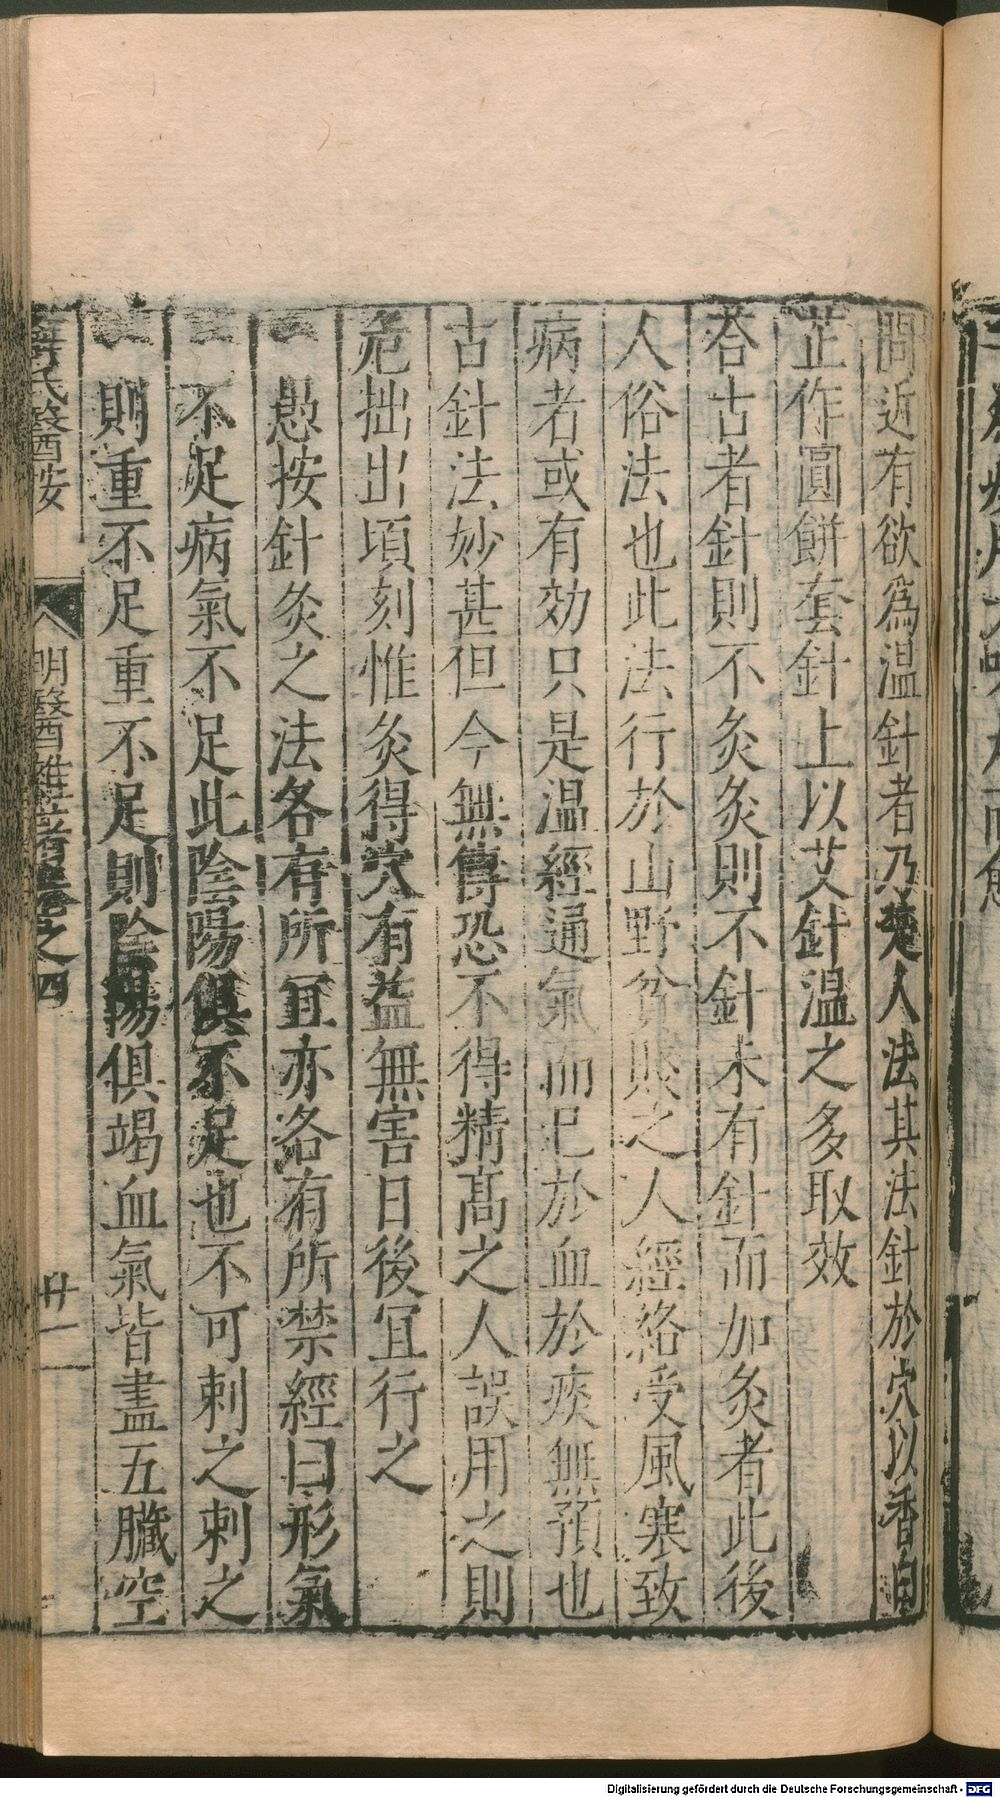 問近有欲為温針者乃楚人法其法針於穴以香白
芷作圓餅套針上以艾針温之多取效
荅古者針則不灸灸則不針未有針而加灸者此後
人俗法也此法行於山野貧賤之人經絡受風寒致
病者或有効只是温經通氣而已於血於疾無預也
古針法妙甚但今無傳恐不得精高之人誤用之則
危拙出頃刻惟灸得穴有益無害日後冝行之
愚按針灸之法各有所冝亦各有所禁經曰形氣
不足病氣不足此陰陽俱不足也不可刺之刺之
則重不足重不足則陰陽俱竭血氣皆盡五臟空
薛氏醫按
明醫雜著卷之四
廿一
Digitalisierung gefördert durch die Deutsche Forschungsgemeinschaft - DFG